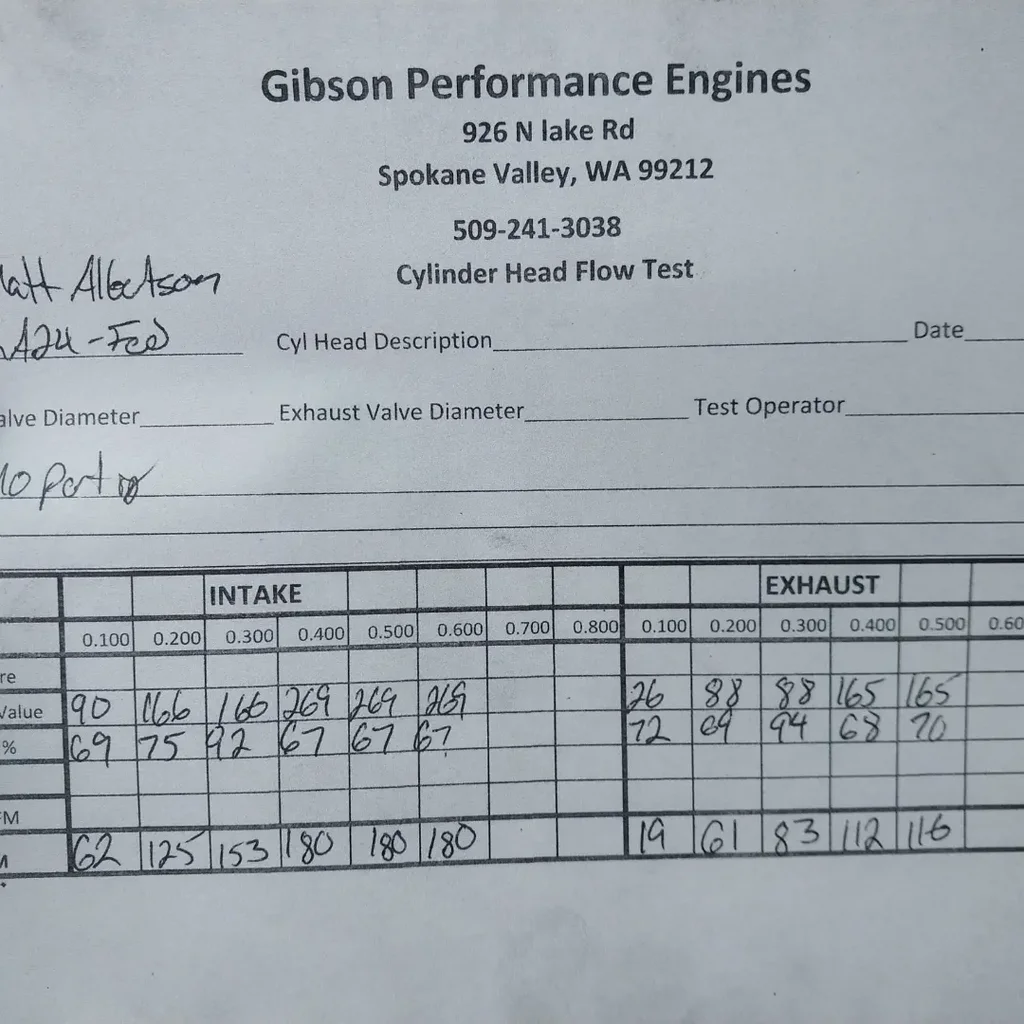 Gibson Performance Engines
926 N lake Rd
Spokane Valley, WA 99212
509-241-3038
Cylinder Head Flow Test
att Albertson
A24-Fed
Cyl Head Description Date
alve Diameter Exhaust Valve Diameter Test Operator
port
INTAKE EXHAUST
0.100 0.200 0.300 0.400 0.500 0.600 0.700 0.800 0.100 0.200 0.300 0.400 0.500 0.60
re
Value 90 166 166 269 269 269 26 88 88 165 165
% 69 75 92 67 67 67 72 69 94 68 70
FM
M 62 125 153 180 180 180 19 61 83 112 116